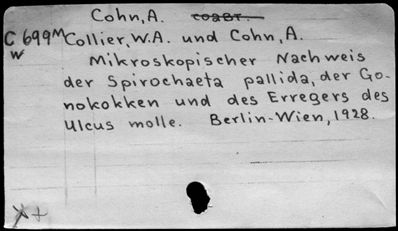 Cohn, A.
C 699M Collier, W.A. und Cohn, A.
w
Mikroskopischer Nachweis
der Spirochaeta pallida, der Go-
nokokken und des Erregers des
Ulcus molle. Berlin-Wien, 1928.